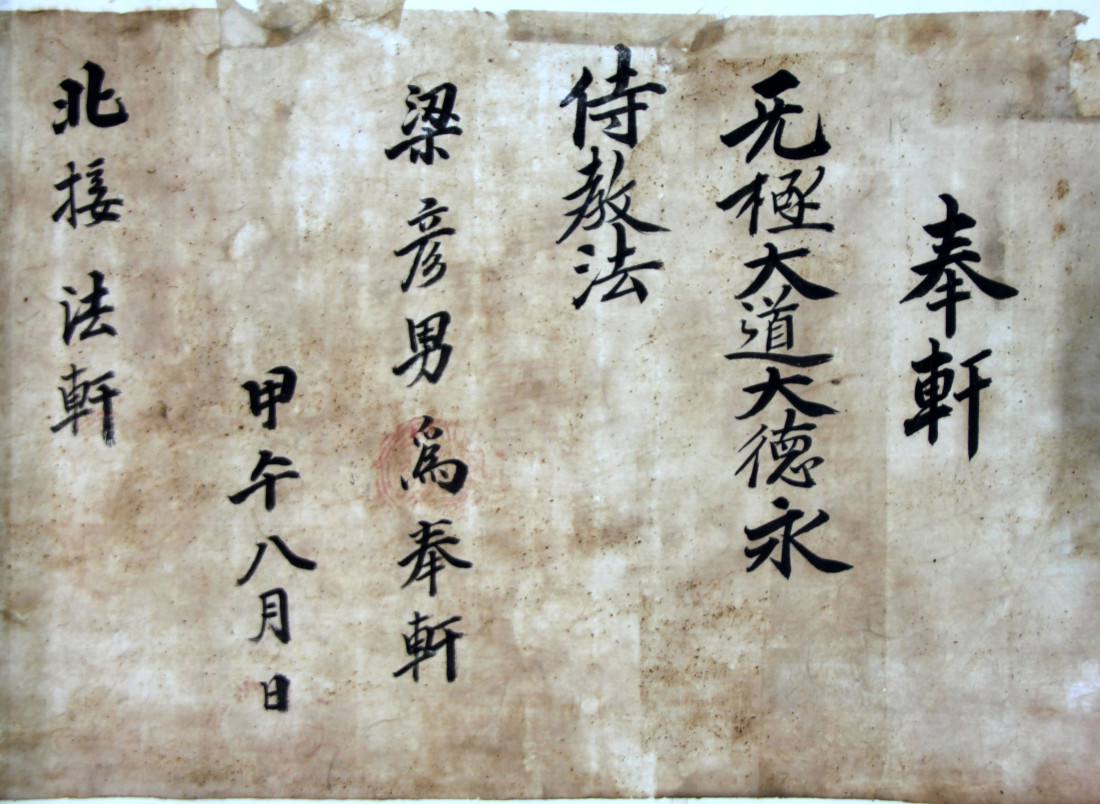 奉軒
无極大道大德永
侍教法
梁彦男爲奉軒
甲午八月日
北接法軒